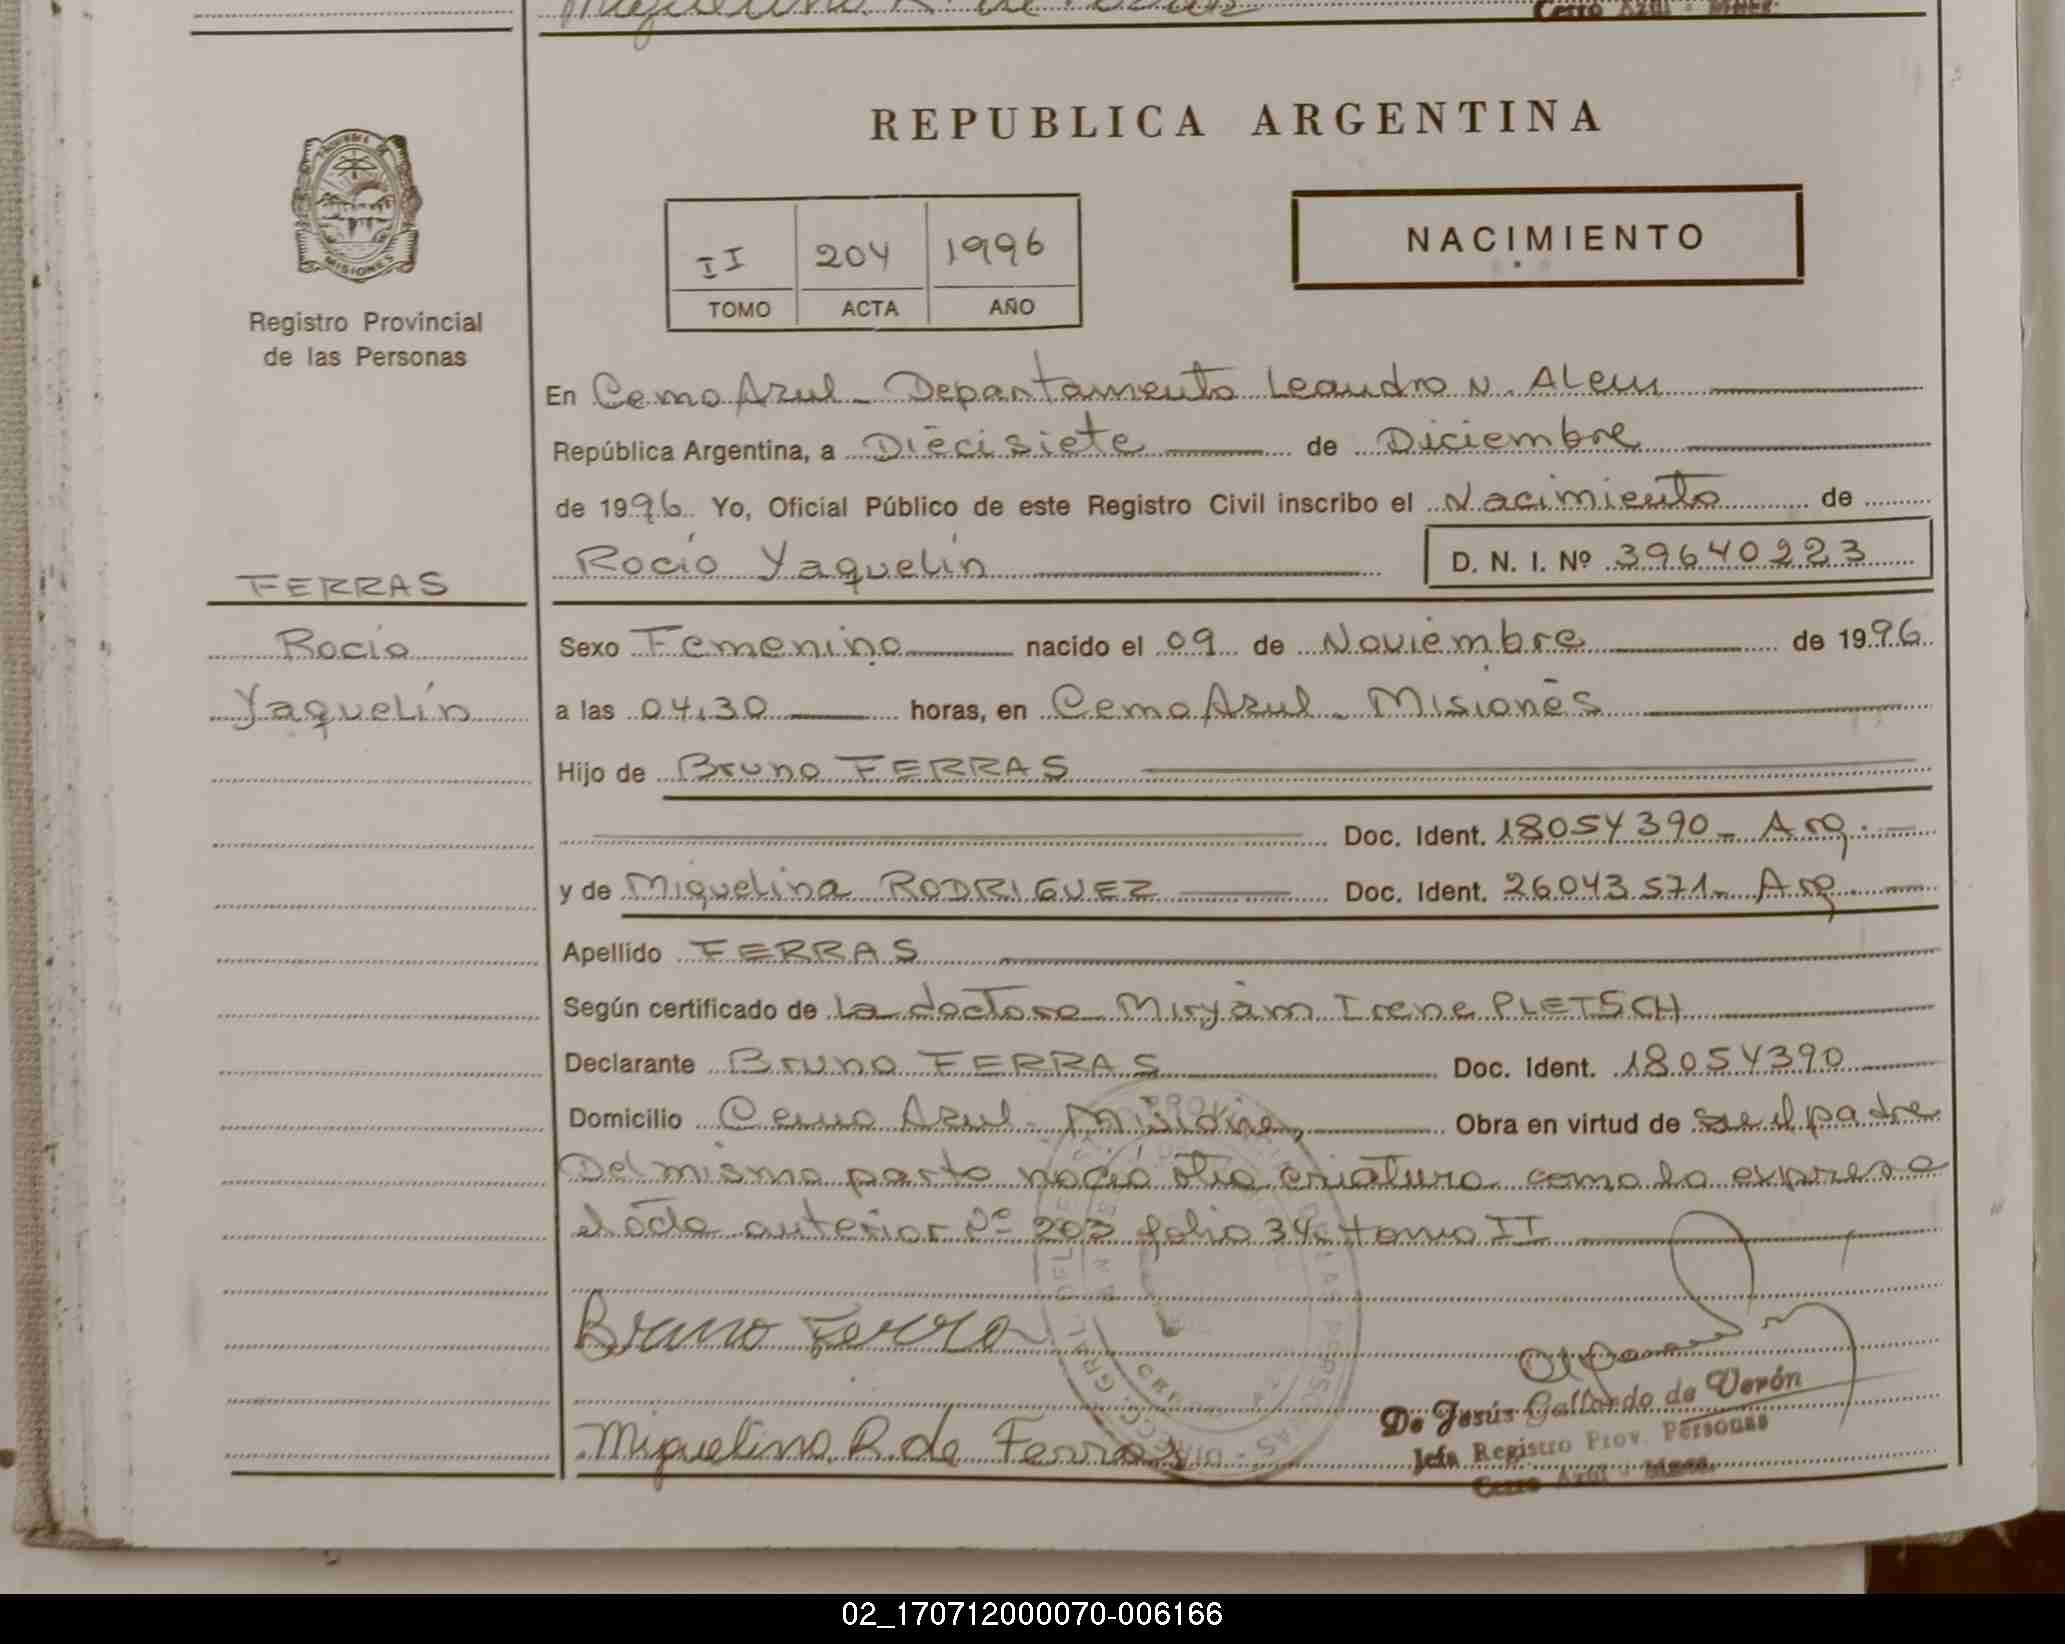 Cerro Azul - Mnes.
REPUBLICA ARGENTINA
MISIONES
Registro Provincial
de las Personas
II 204 1996
TOMO ACTA AÑO
NACIMIENTO
En Cerro Azul - Departamento Leandro N. Alem
República Argentina, a Diecisiete de Diciembre
de 1996. Yo, Oficial Público de este Registro Civil inscribo el Nacimiento de
Rocío Yaquelín D. N. I. Nº 39640223
FERRAS
Rocío
Yaquelín
Sexo Femenino nacido el 09 de Noviembre de 1996
a las 04,30 horas, en Cerro Azul - Misiones
Hijo de Bruno FERRAS
Doc. Ident. 18054390 - Arg.
y de Miguelina RODRIGUEZ Doc. Ident. 26043571 - Arg.
Apellido FERRAS
Según certificado de la doctora Miryam Irene PLETSCH
Declarante Bruno FERRAS Doc. Ident. 18054390
Domicilio Cerro Azul - Misiones Obra en virtud de ser el padre
Del mismo parto nació otra criatura como lo expresa
el acta anterior Nº 203 folio 34 tomo II
Bruno Ferra
Miguelina R. de Ferras
De Jesús Gallardo de Verón
Jefa Registro Prov. Personas
Cerro Azul - Mnes.
02_170712000070-006166